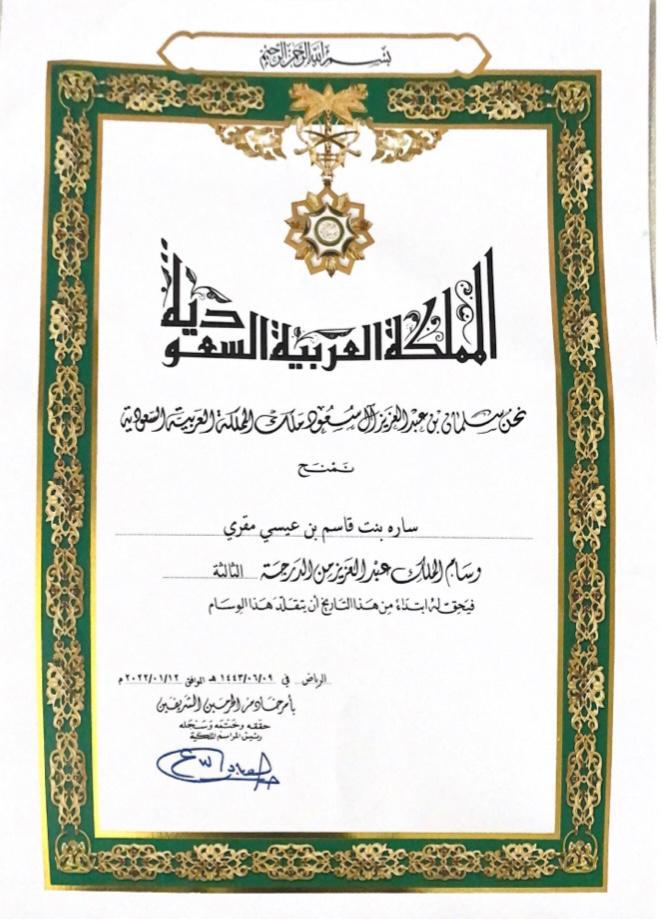 بسم الله الرحمن الرحيم
المملكة العربية السعودية
نحن سلمان بن عبد العزيز آل سعود ملك المملكة العربية السعودية
نمنح
ساره بنت قاسم بن عيسي مقري
وسام الملك عبد العزيز من الدرجة الثالثة
فيحق له ابتداءً من هذا التاريخ أن يتقلد هذا الوسام
الرياض في ١٤٤٣/٠٦/٠٩ هـ الموافق ٢٠٢٢/٠١/١٢ م
بأمر خادم الحرمين الشريفين
حققه وختمه وسجله
رئيس المراسم الملكية